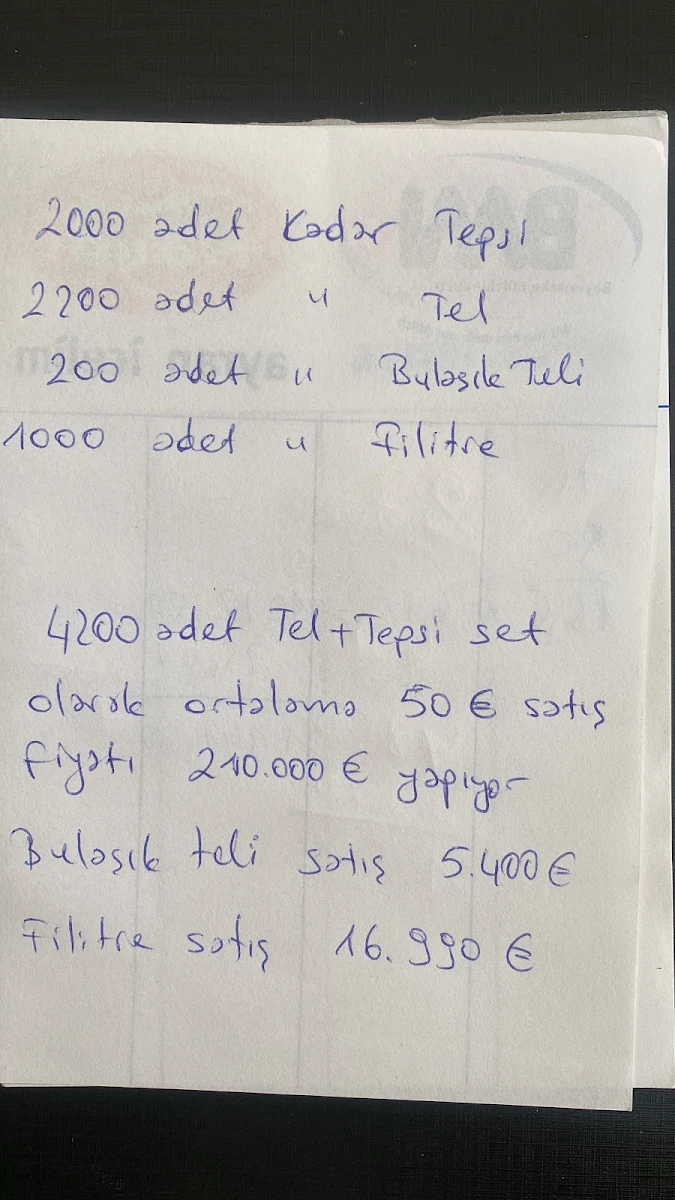 2000 adet Kadar Tepsi
2200 adet " Tel
200 adet " Bulaşık Teli
1000 adet " Filitre
4200 adet Tel+Tepsi set
olarak ortalama 50 € satış
fiyatı 210.000 € yapıyor
Bulaşık teli satış 5.400 €
Filitre satış 16.990 €